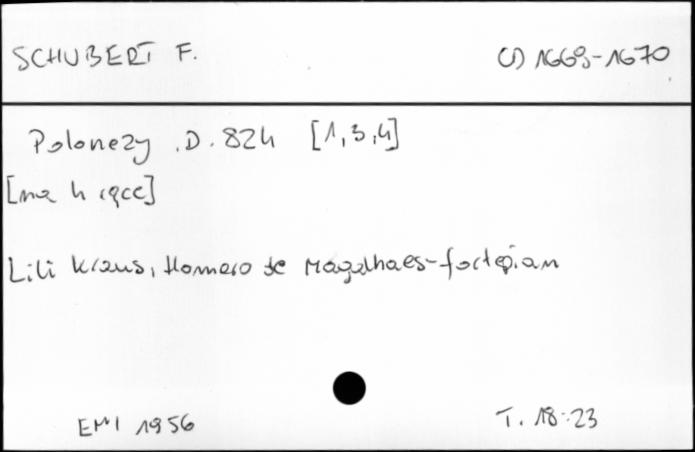 SCHUBERT F. CD 1669-1670
Polonezy D. 824 [1,3,4]
[na 4 ręce]
Lili Kraus, Homero de Magalhaes-fortepian
EMI 1956 T. 18:23